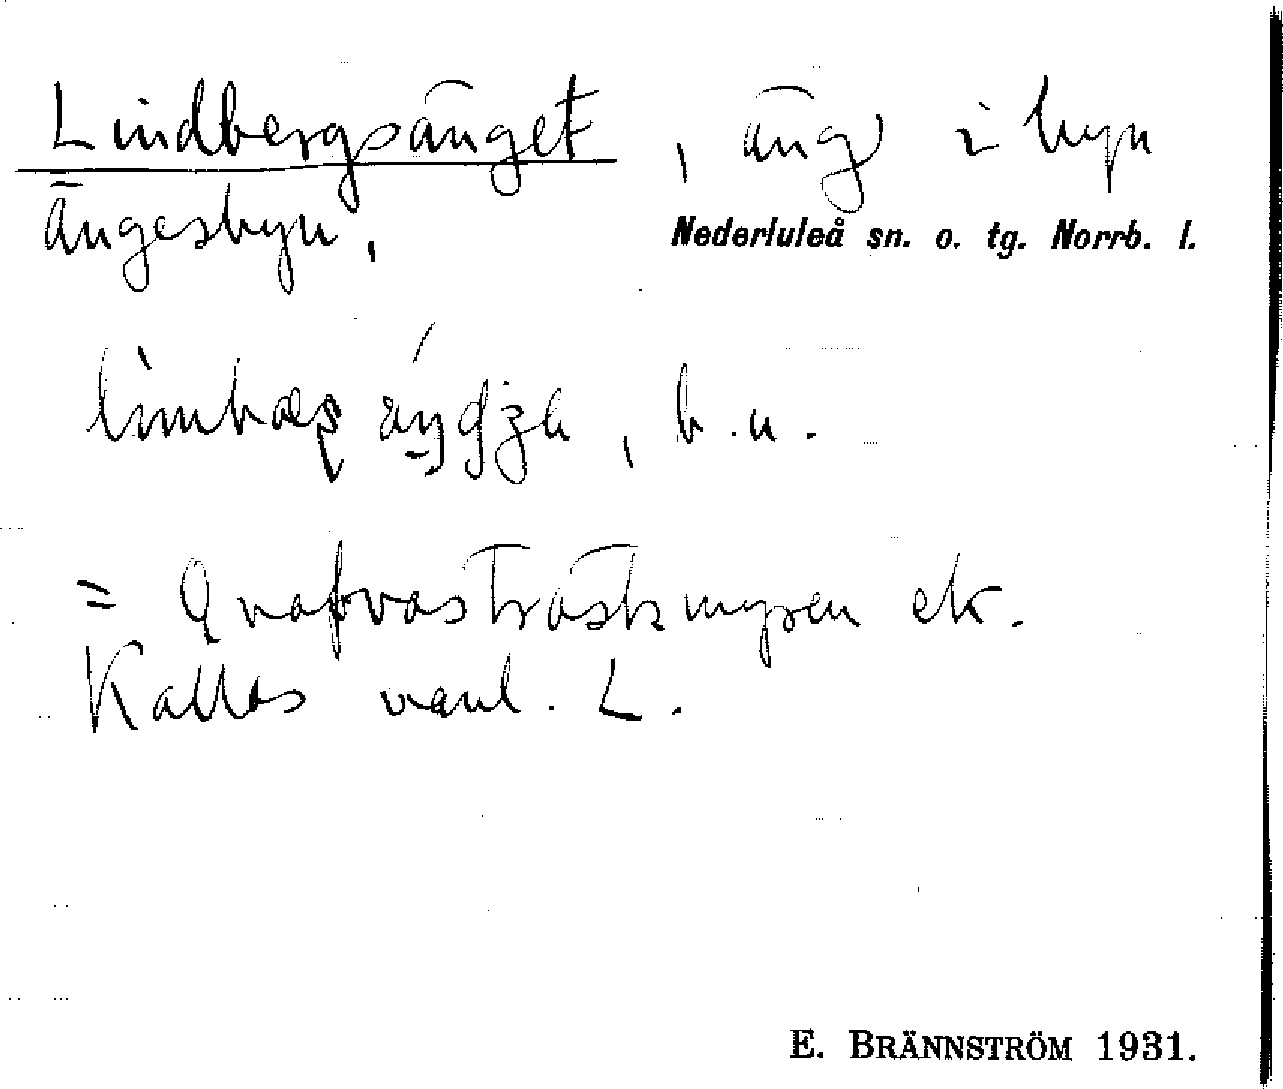 Lindbergsänget, äng i byn
Ängesbyn,
Nederluleå sn. o. tg. Norrb. l.
b.u.
= Qvafvasträskmyren etc.
Kallas vanl. L.
E. BRÄNNSTRÖM 1931.